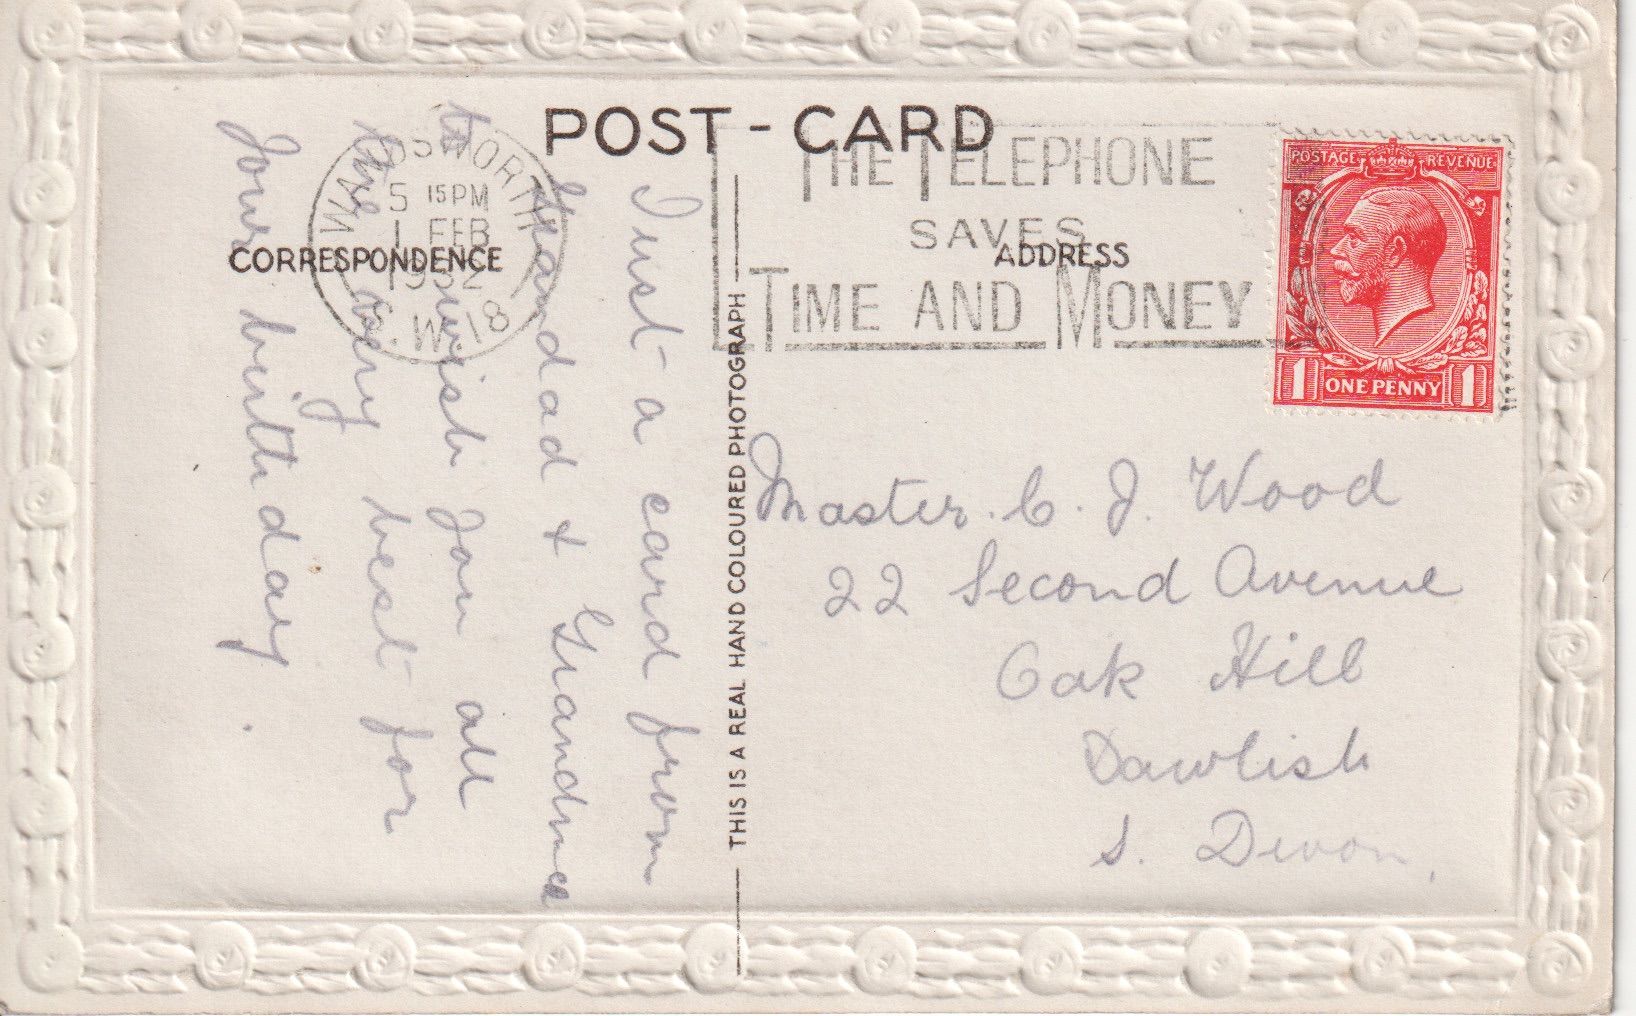 POST-CARD
CORRESPONDENCE
ADDRESS
THIS IS A REAL HAND COLOURED PHOTOGRAPH
WANDSWORTH
5 15PM
1 FEB
1932
S.W.18
THE TELEPHONE
SAVES
TIME AND MONEY
POSTAGE REVENUE
1 ONE PENNY 1
Just a card from
Grandad & Grandma
to wish you all
the very best for
your birthday.
Master. C. J. Wood
22 Second Avenue
Oak Hill
Dawlish
S. Devon,